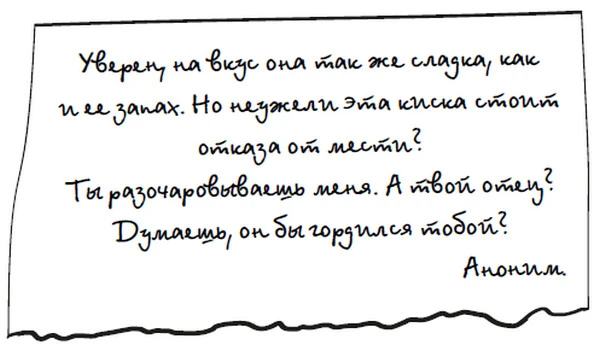 Уверен, на вкус она так же сладка, как
и ее запах. Но неужели эта киска стоит
отказа от мести?
Ты разочаровываешь меня. А твой отец?
Думаешь, он бы гордился тобой?
Аноним.